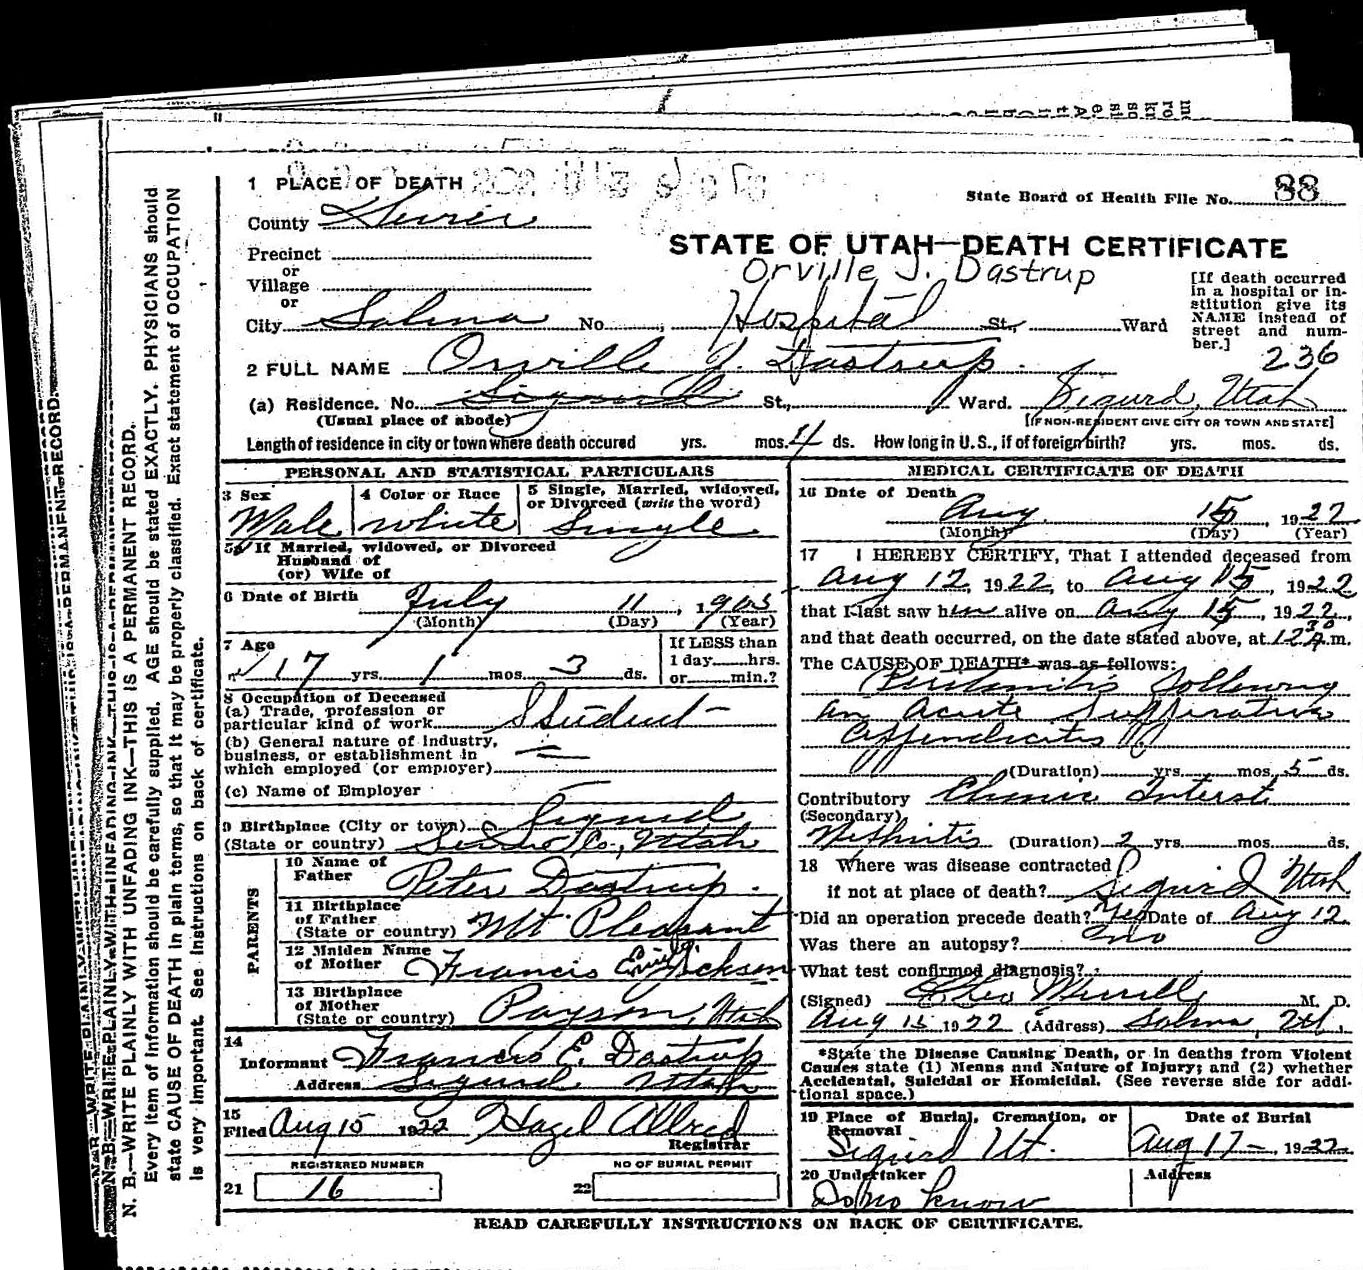 1 PLACE OF DEATH
State Board of Health File No. 88
County Sevier
STATE OF UTAH—DEATH CERTIFICATE
Precinct
or
Village
or
Orville J. Dastrup
[If death occurred in a hospital or institution give its NAME instead of street and number.]
City Salina No. , Hospital St., Ward
236
2 FULL NAME Orville J. Dastrup.
(a) Residence. No. Sigurd St., Ward. Sigurd, Utah
(Usual place of abode) [IF NON-RESIDENT GIVE CITY OR TOWN AND STATE]
Length of residence in city or town where death occured yrs. mos. 4 ds. How long in U. S., if of foreign birth? yrs. mos. ds.
PERSONAL AND STATISTICAL PARTICULARS
3 Sex Male
4 Color or Race White
5 Single, Married, widowed, or Divorced (write the word) Single
5a If Married, widowed, or Divorced
Husband of
(or) Wife of
6 Date of Birth July 11, 1905
(Month) (Day) (Year)
7 Age 17 yrs. 1 mos. 3 ds.
If LESS than
1 day hrs.
or min.?
8 Occupation of Deceased
(a) Trade, profession or
particular kind of work Student
(b) General nature of industry,
business, or establishment in
which employed (or employer)
(c) Name of Employer
9 Birthplace (City or town) Sigurd
(State or country) Sevier Co., Utah
PARENTS
10 Name of
Father Peter Dastrup.
11 Birthplace
of Father
(State or country) Mt Pleasant
12 Maiden Name
of Mother Francis Jackson
13 Birthplace
of Mother
(State or country) Payson, Utah
14
Informant Francis E. Dastrup
Address Sigurd Utah
15
Filed Aug 15 1922 Hazel Allred
Registrar
REGISTERED NUMBER NO OF BURIAL PERMIT
21 16 22
MEDICAL CERTIFICATE OF DEATH
16 Date of Death
Aug. 15, 1922
(Month) (Day) (Year)
17 I HEREBY CERTIFY, That I attended deceased from
Aug 12, 1922, to Aug 15, 1922
that I last saw him alive on Aug 15, 1922,
and that death occurred, on the date stated above, at 12 30 A.m.
The CAUSE OF DEATH* was as follows:
Peritonitis following
an acute Suppurative
Appendicitis
(Duration) yrs. mos. 5 ds.
Contributory Chronic Interst.
(Secondary)
Nephritis (Duration) 2 yrs. mos. ds.
18 Where was disease contracted
if not at place of death? Sigurd Utah
Did an operation precede death? Yes Date of Aug 12.
Was there an autopsy? no
What test confirmed diagnosis?
(Signed) Merrill M. D.
Aug 15 1922 (Address) Salina, Ut.
*State the Disease Causing Death, or in deaths from Violent
Causes state (1) Means and Nature of Injury; and (2) whether
Accidental, Suicidal or Homicidal. (See reverse side for addi-
tional space.)
19 Place of Burial, Cremation, or
Removal
Sigurd Ut.
Date of Burial
Aug 17—, 1922
20 Undertaker
Do no know
Address
READ CAREFULLY INSTRUCTIONS ON BACK OF CERTIFICATE.
N. B.—WRITE PLAINLY WITH UNFADING INK—THIS IS A PERMANENT RECORD.
Every item of information should be carefully supplied. AGE should be stated EXACTLY. PHYSICIANS should
state CAUSE OF DEATH in plain terms, so that it may be properly classified. Exact statement of OCCUPATION
is very important. See instructions on back of certificate.